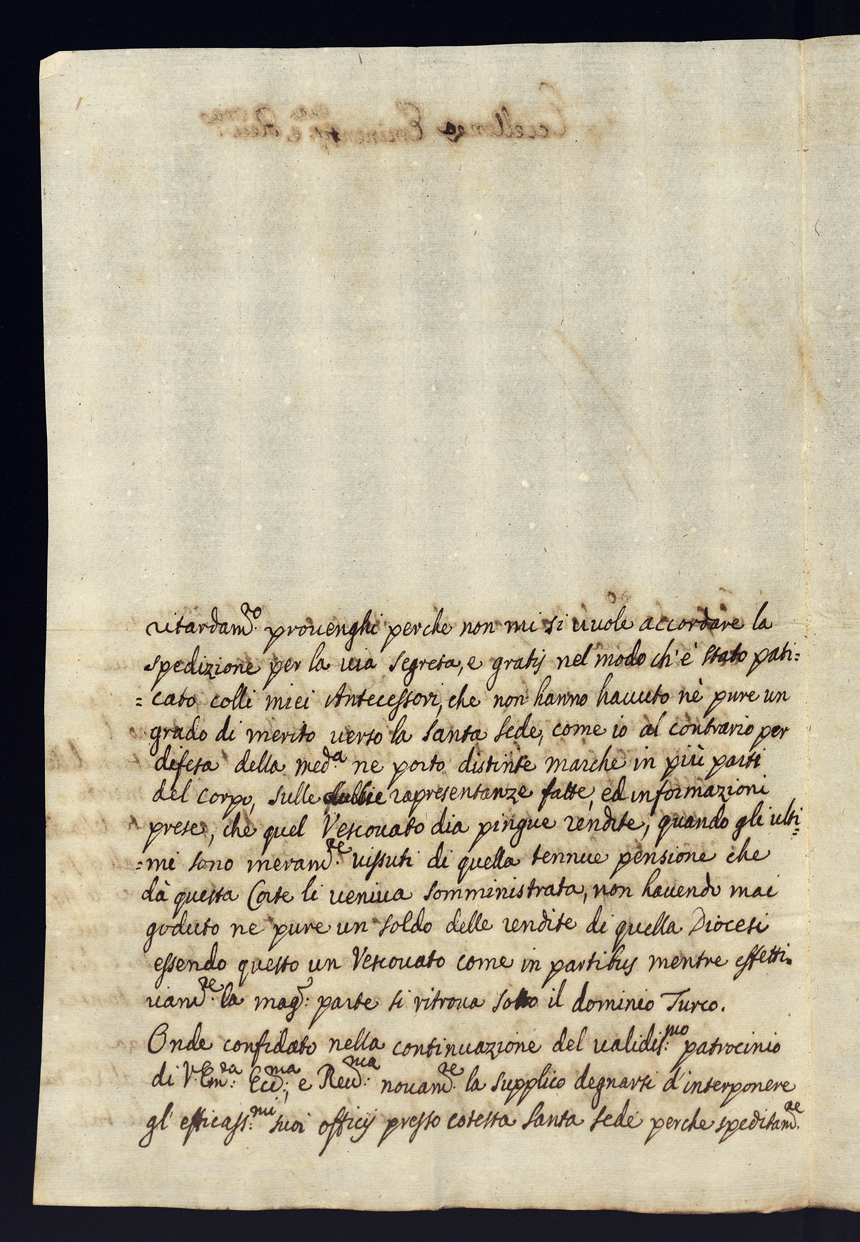 ritardam.to provenghi perche non mi si vuole accordare la
spedizione per la via segreta, e gratis nel modo ch'è stato pati=
=cato colli miei Antecessori, che non hanno havuto nè pure un
grado di merito verso la Santa Sede, come io al contrario per
difesa della med.a ne porto distinte marche in più parti
del corpo, sulle rapresentanze fatte, ed informazioni
prese, che quel Vescovato dia pingue rendite, quando gli ulti=
=mi sono meram.te vissuti di quella tennue pensione che
dà questa Corte li veniva somministrata, non havendo mai
goduto ne pure un soldo delle rendite di quella Diocesi
essendo questo un Vescovato come in partibus mentre effetti=
vam.te la mag.r parte si ritrova sotto il dominio Turco.
Onde confidato nella continuazione del validis.mo patrocinio
di V. Em.za Ecc.ma, e Rev.ma novam.te la supplico degnarsi d'interponere
gl' efficass.mi suoi officij presso cotesta Santa Sede perche speditam.te